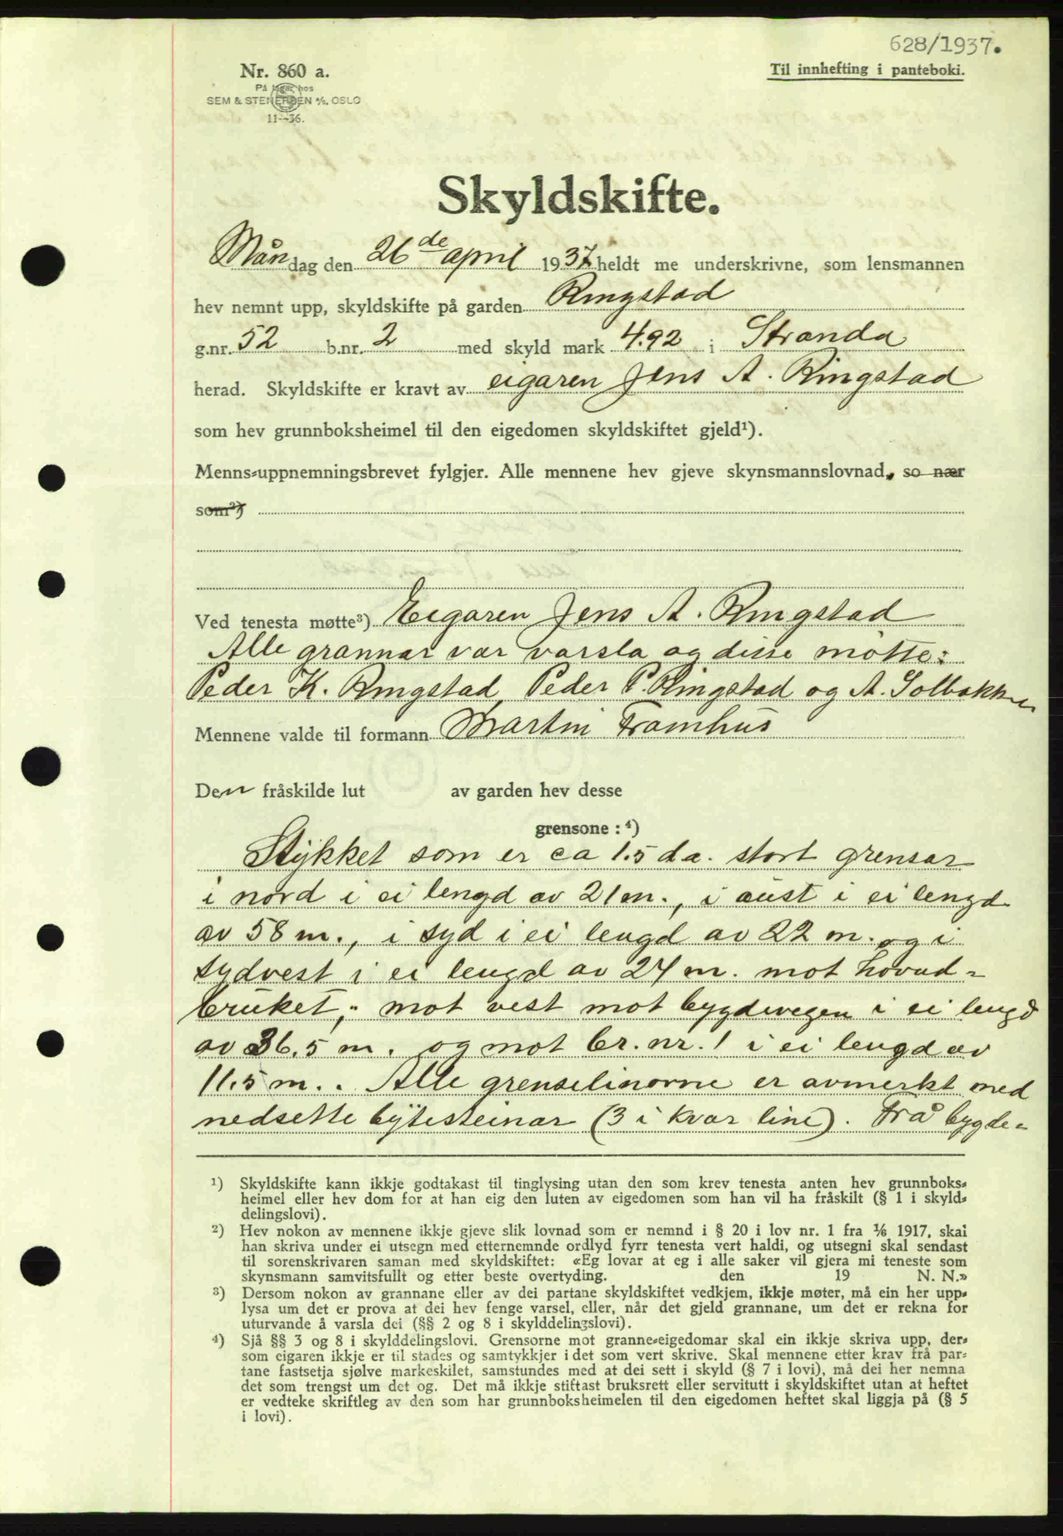 628/1937.
Nr. 860 a.
Til innhefting i panteboki.
På lager hos
SEM & STENERSEN A/S, OSLO
11—36.
Skyldskifte.
Måndag den 26de april 1937 heldt me underskrivne, som lensmannen
hev nemnt upp, skyldskifte på garden Ringstad
g.nr. 52 b.nr. 2 med skyld mark 4.92 i Stranda
herad. Skyldskifte er kravt av eigaren Jens A. Ringstad
som hev grunnboksheimel til den eigedomen skyldskiftet gjeld¹).
Menns-uppnemningsbrevet fylgjer. Alle mennene hev gjeve skynsmannslovnad, so nær
som²)
Ved tenesta møtte³) Eigaren Jens A. Ringstad
Alle grannar var varsla og disse møtte:
Peder K. Ringstad, Peder P. Ringstad og A. Solbakken
Mennene valde til formann Martin Framhus
Den fråskilde lut av garden hev desse
grensone: ⁴)
Stykket som er ca 1.5 da. stort grensar
i nord i ei lengd av 21 m., i aust i ei lengd
av 58 m., i syd i ei lengd av 22 m. og i
sydvest i ei lengd av 27 m. mot hovud-
bruket, mot vest mot bygdevegen i ei lengd
av 36.5 m. og mot br. nr. 1 i ei lengd av
11.5 m.. Alle grenselinorne er avmerkt med
nedsette bytesteinar (3 i kvar line). Frå bygde-
¹) Skyldskifte kann ikkje godtakast til tinglysing utan den som krev tenesta anten hev grunnboks-
heimel eller hev dom for at han eig den luten av eigedomen som han vil ha fråskilt (§ 1 i skyld-
delingslovi).
²) Hev nokon av mennene ikkje gjeve slik lovnad som er nemnd i § 20 i lov nr. 1 fra 1/6 1917, skal
han skriva under ei utsegn med etternemnde ordlyd fyrr tenesta vert haldi, og utsegni skal sendast
til sorenskrivaren saman med skyldskiftet: «Eg lovar at eg i alle saker vil gjera mi teneste som
skynsmann samvitsfullt og etter beste overtyding. den 19 N. N.»
³) Dersom nokon av grannane eller av dei partane skyldskiftet vedkjem, ikkje møter, må ein her upp-
lysa um det er prova at dei hev fenge varsel, eller, når det gjeld grannane, um det er rekna for
uturvande å varsla dei (§§ 2 og 8 i skylddelingslovi).
⁴) Sjå §§ 3 og 8 i skylddelingslovi. Grensorne mot granne-eigedomar skal ein ikkje skriva upp, der-
som eigaren ikkje er til stades og samtykkjer i det som vert skrive. Skal mennene etter krav frå par-
tane fastsetja sjølve markeskilet, samstundes med at dei sett i skyld (§ 7 i lovi), må dei her nemna
det som trengst um det og. Det må ikkje stiftast bruksrett eller servitutt i skyldskiftet utan at heftet
er vedteke skriftleg av den som har grunnboksheimelen til den eigedomen heftet skal liggja på (§ 5
i lovi).